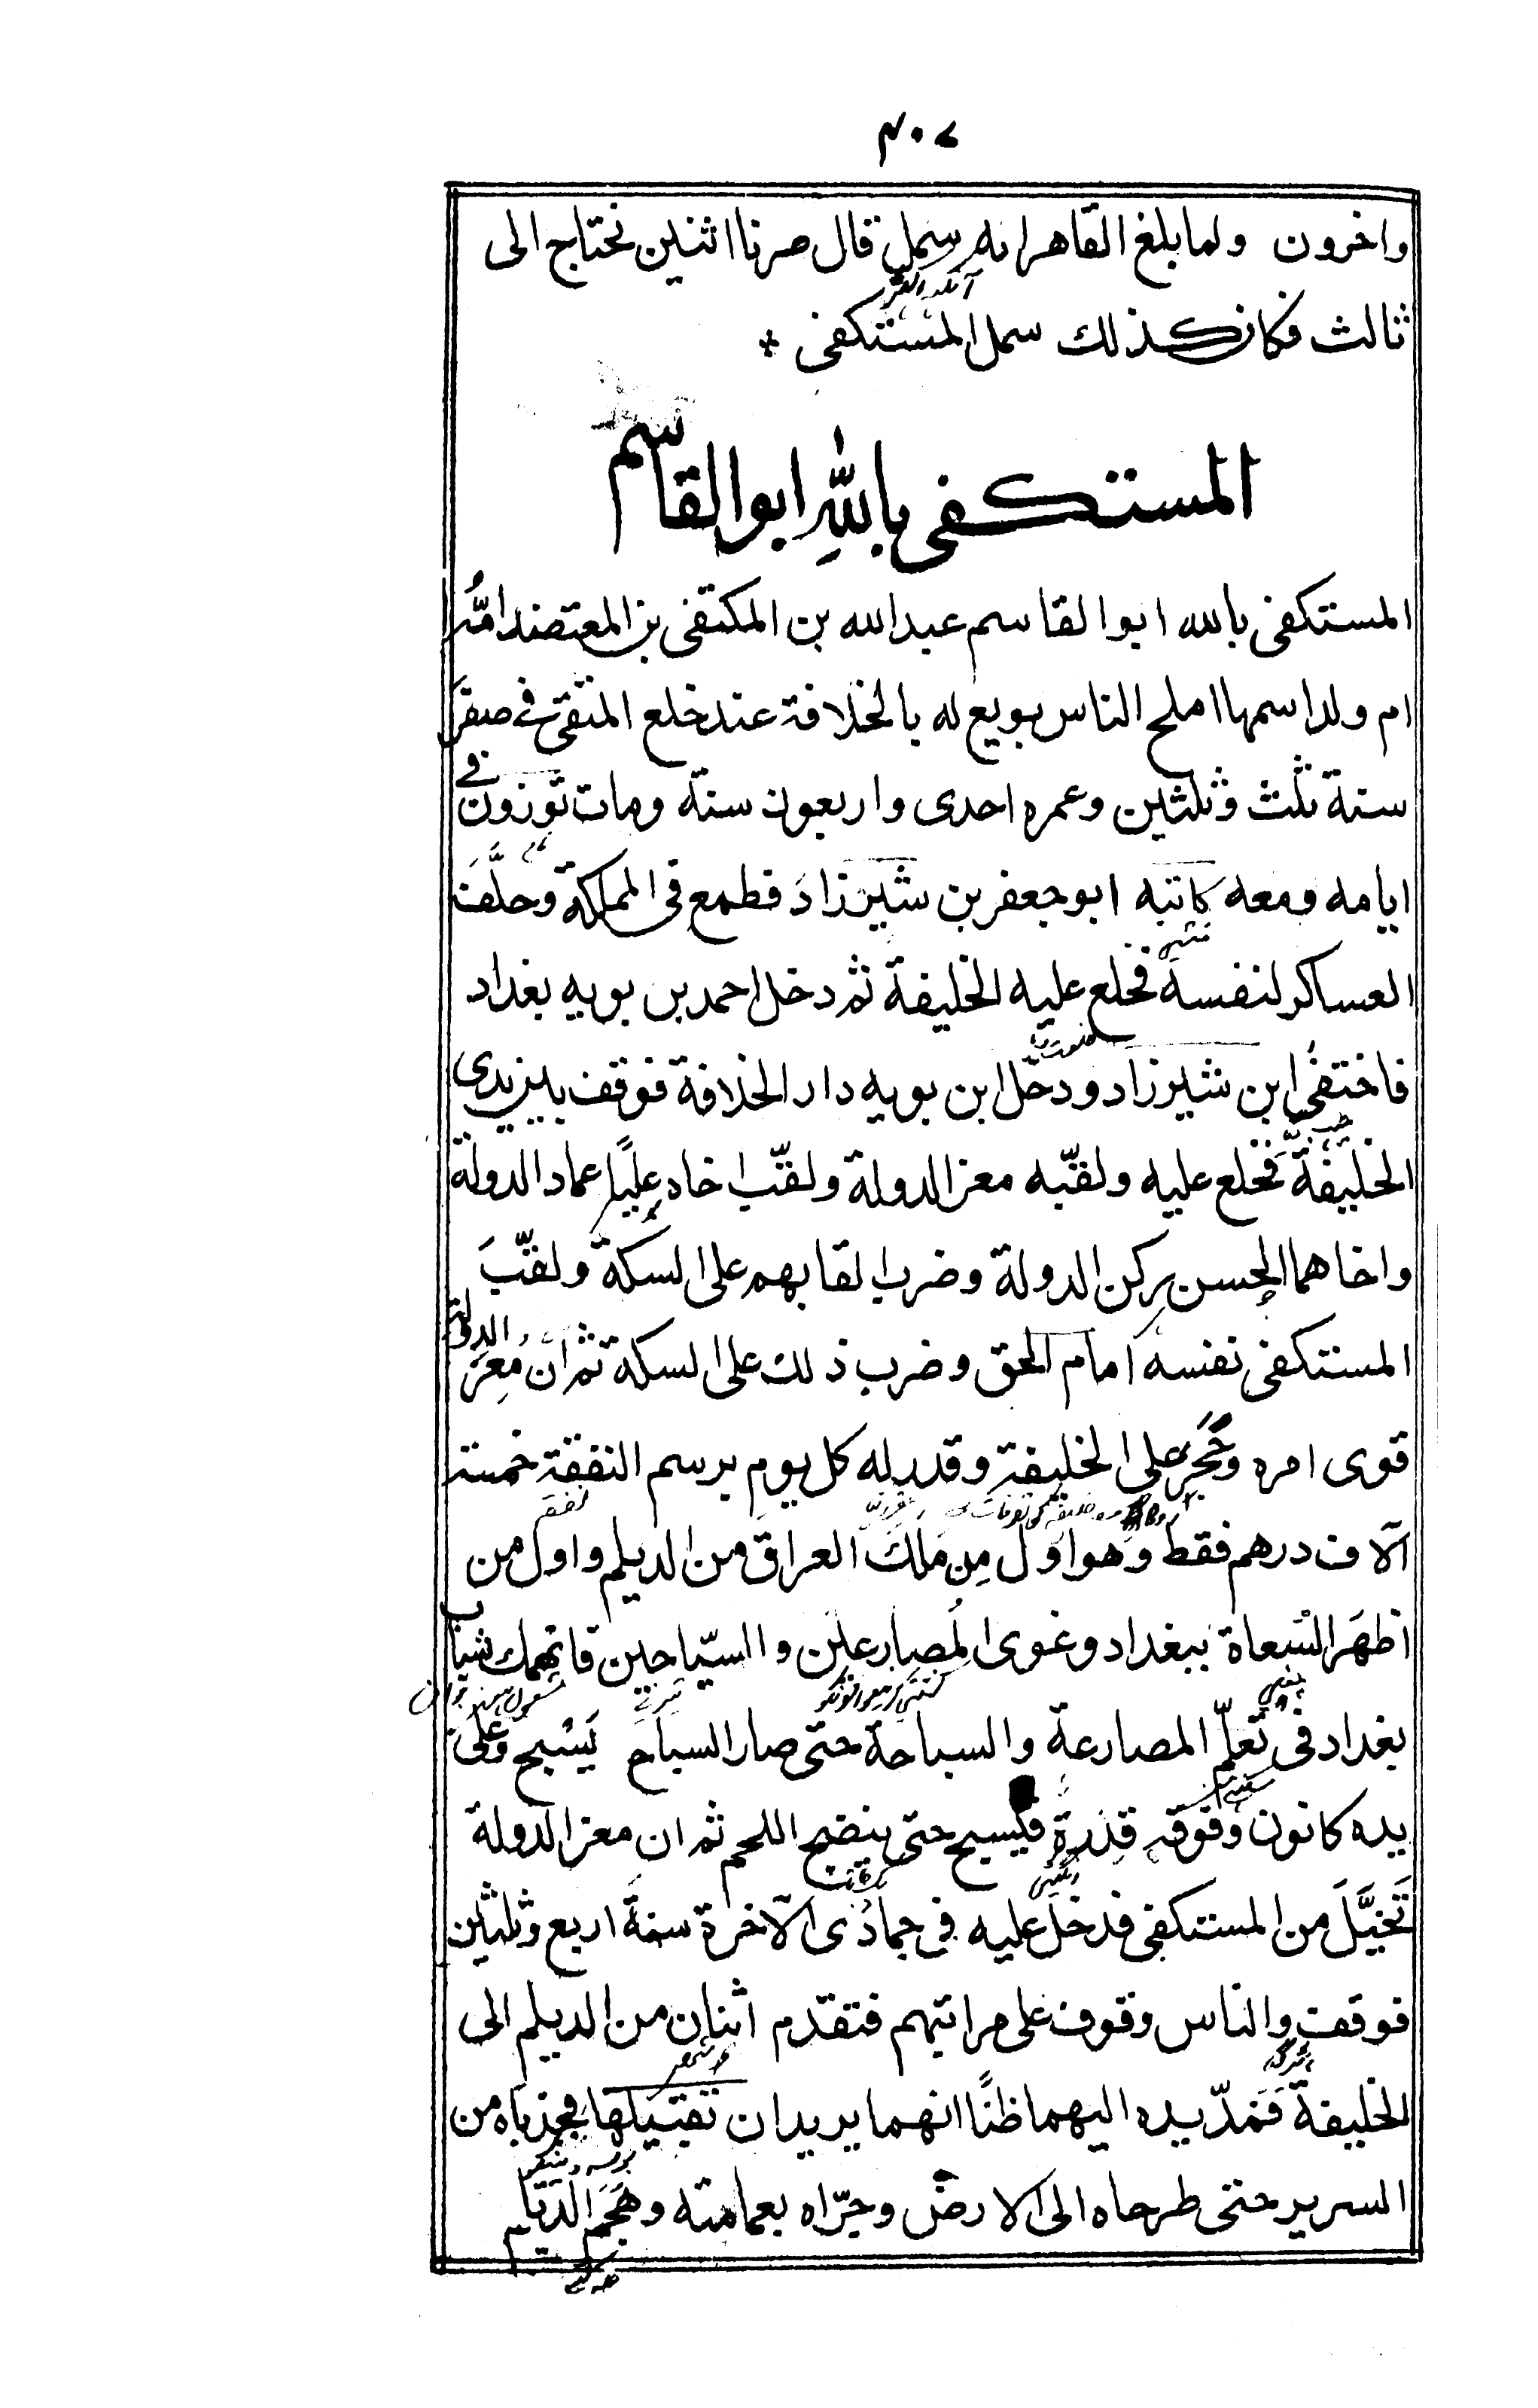 ٤٠٧
واخرون ولما بلغ القاهر انه سمل قال صرنا اثنين نحتاج الى
ثالث فكان كذلك سمل المستكفى *
المستكفى بالله ابوالقاسم
المستكفى بالله ابوالقاسم عبدالله بن المكتفى بن المعتضد امّه
ام ولد اسمها املح الناس بويع له بالخلافة عند خلع المتقى فى صفر
سنة ثلث وثلثين وعمره احدى واربعون سنة ومات توزون فى
ايامه ومعه كاتبه ابوجعفر بن شيرزاد فطمع فى المملكة وحلّف
العساكر لنفسه فخلع عليه الخليفة ثم دخل احمد بن بويه بغداد
فاختفى ابن شيرزاد ودخل ابن بويه دار الخلافة فوقف بين يدى
الخليفة فخلع عليه ولقّبه معز الدولة ولقّب اخاه عليًا عماد الدولة
واخاهما الحسن بركن الدولة وضرب القابهم على السكة ولقّبَ
المستكفى نفسه امام الحق وضرب ذلك على السكة ثم ان معز الدولة
قوى امره وحَجَر على الخليفة وقدر له كل يوم برسم النفقة خمسة
آلاف درهم فقط وهو اول من ملك العراق من الديلم واول من
اظهر السُعاة ببغداد وغوى المصارعين والسبّاحين فانهمك شباب
بغداد فى تعلّم المصارعة والسباحة حتى صار السباح يَسْبح وعلى
يده كانون وفوقه قدرة فيسبح حتى ينضج اللحم ثم ان معز الدولة
تَخيَّلَ من المستكفى فدخل عليه فى جمادى الآخرة سنة اربع وثلثين
فوقف والناس وقوف على مراتبهم فتقدم اثنان من الديلم الى
الخليفة فَمَدّ يده اليهما ظنًا انهما يريدان تقبيلها فجذباه من
السرير حتى طرحاه الى الارض وجرّاه بعمامته وهَجَم الديلم